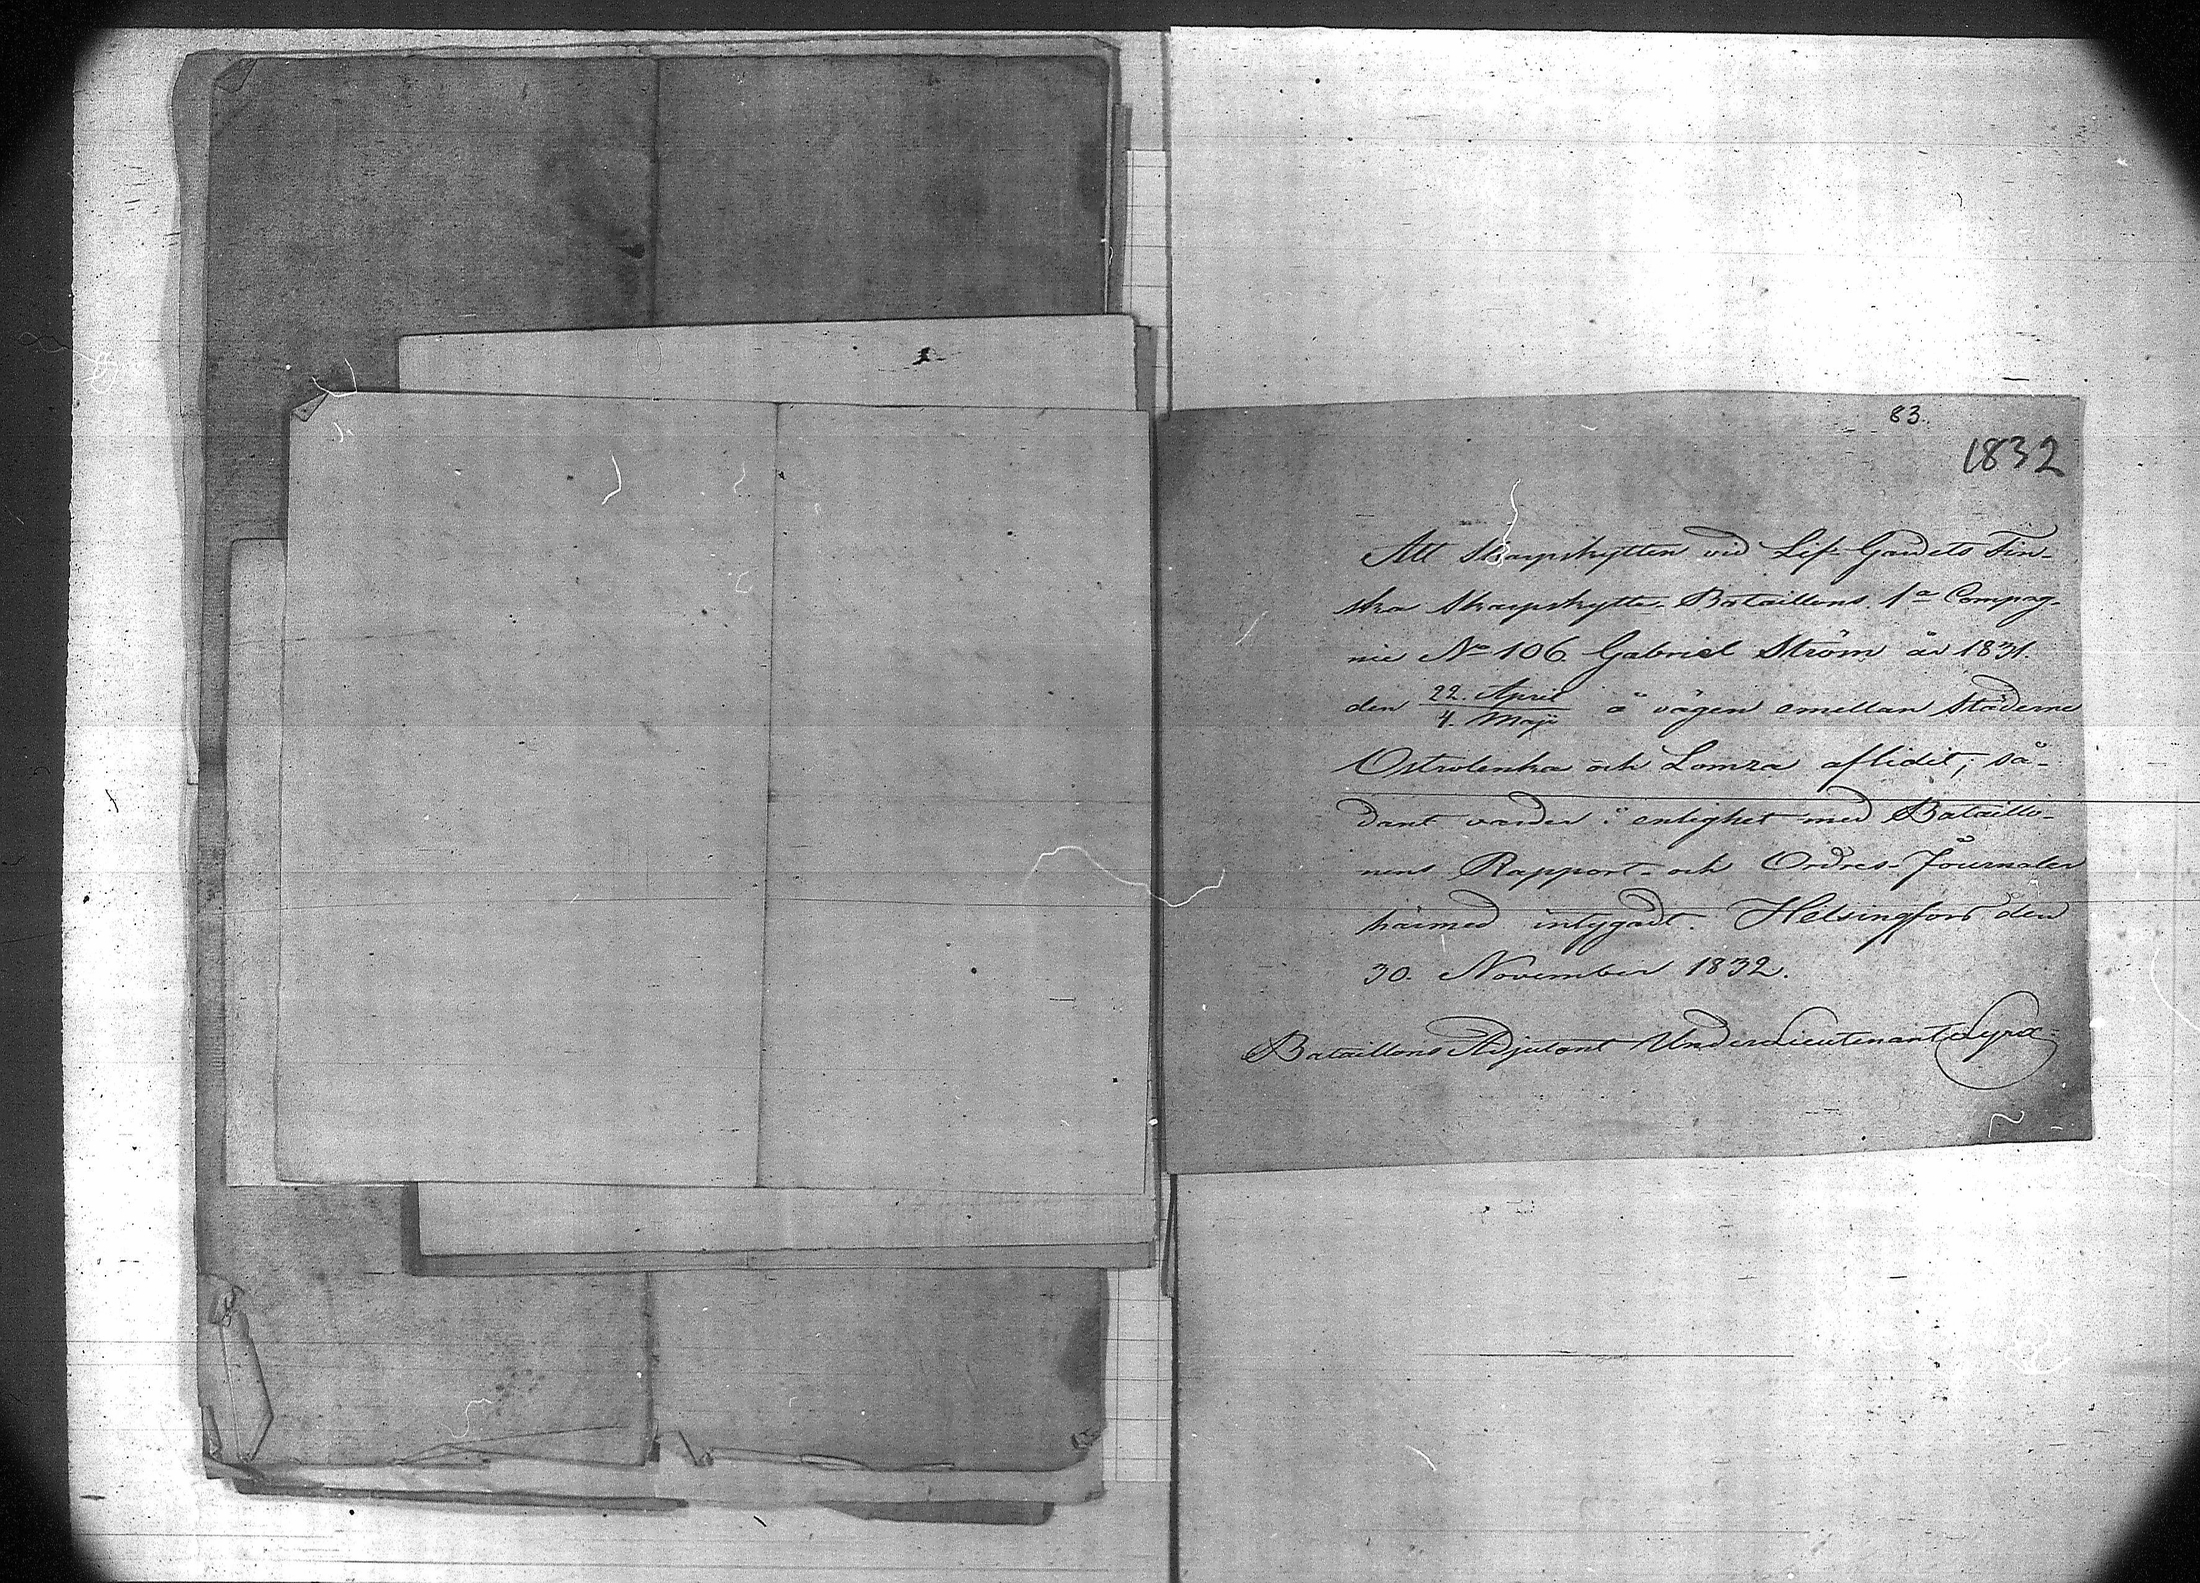 83.
1832
Att Skarpskytten vid Lif-Gardets Fin-
ska Skarpskytte-Bataillons 1a Compag-
nie No 106 Gabriel Ström år 1831.
den 22. April / 4. Maji å vägen emellan Städerne
Ostrolenka och Lomza aflidit, så-
dant varder i enlighet med Bataillo-
nens Rapport- och Ordres-Journaler
härmed intygadt. Helsingfors den
30. November 1832.
Bataillons Adjutant Underlieutenant